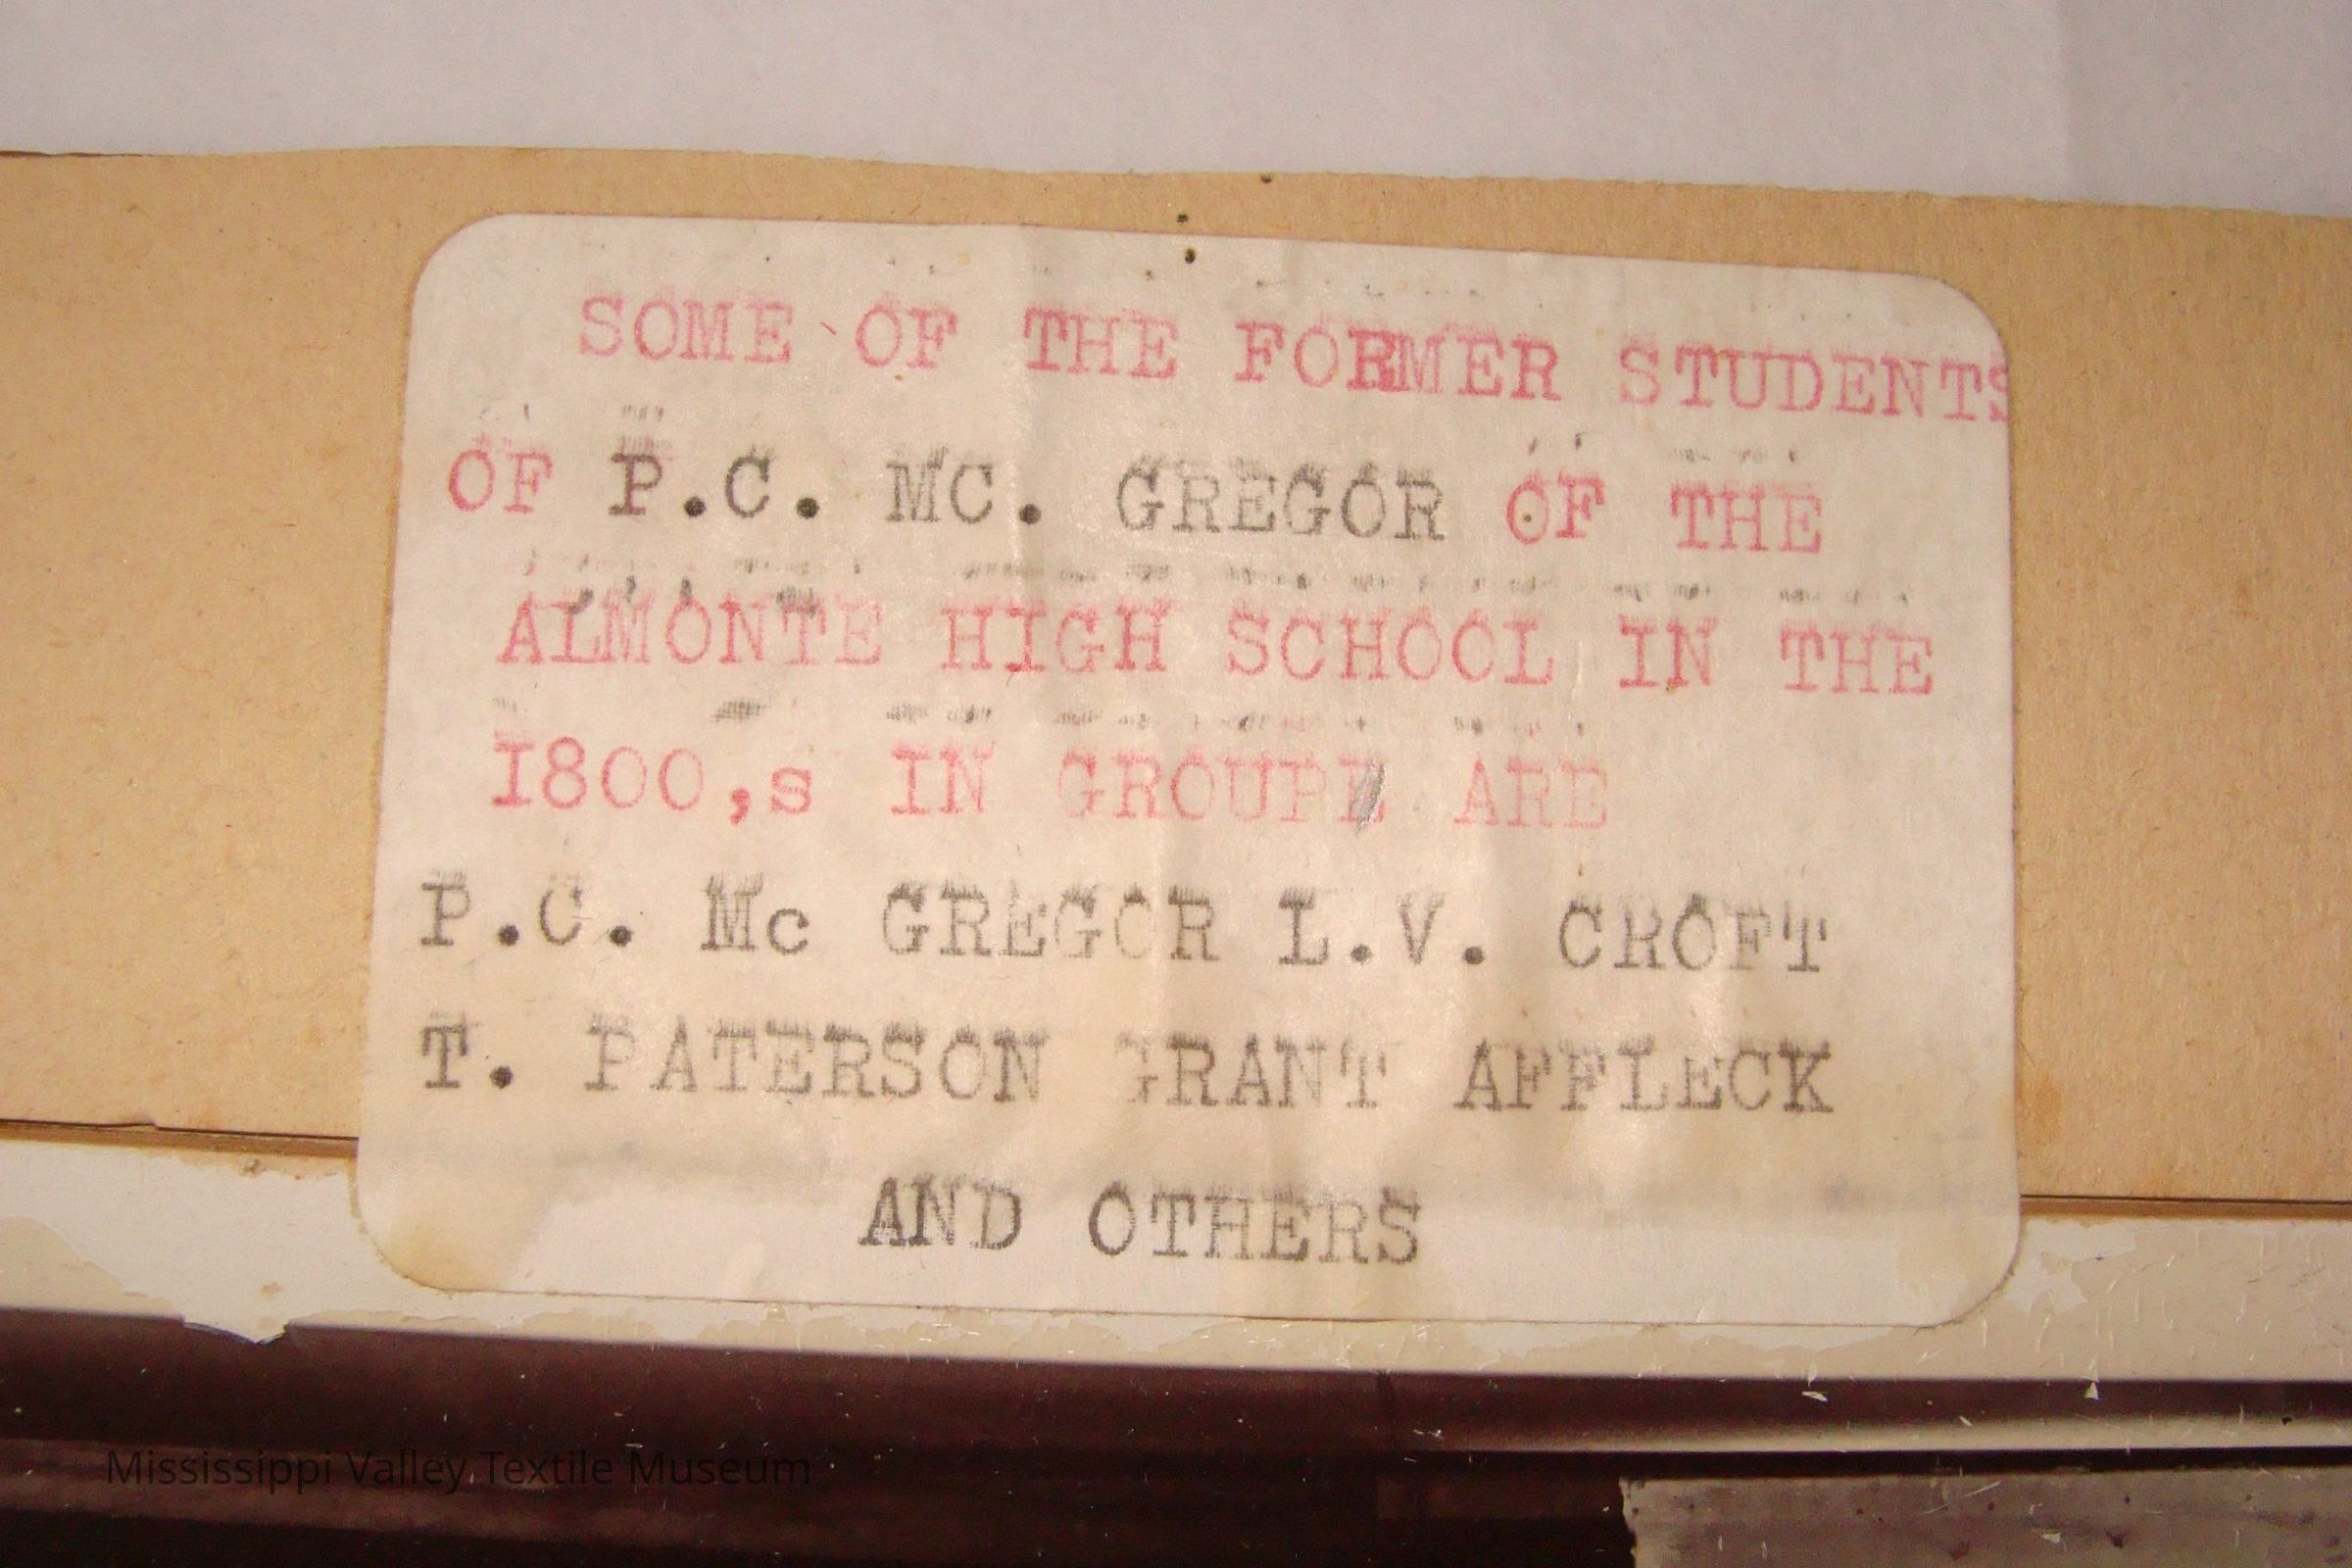 SOME OF THE FORMER STUDENTS
OF P.C. MC. GREGOR OF THE
ALMONTE HIGH SCHOOL IN THE
I800,s IN GROUPE ARE
P.C. Mc GREGOR L.V. CROFT
T. PATERSON GRANT AFFLECK
AND OTHERS
Mississippi Valley Textile Museum